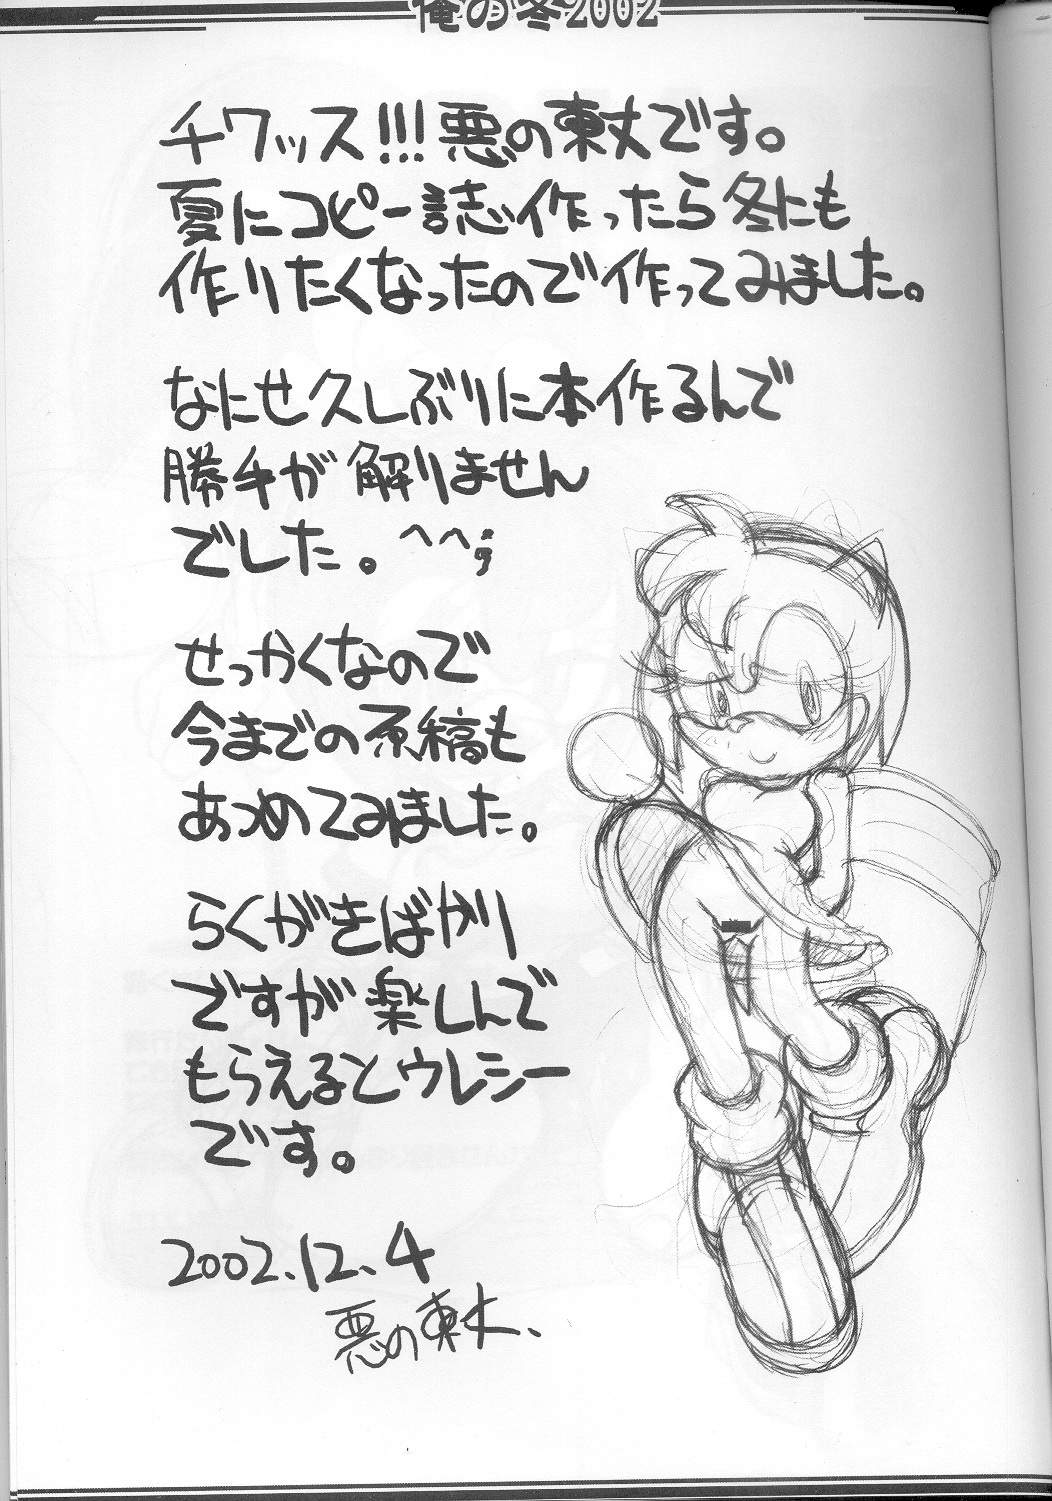 俺の冬2002
チワッス!!!悪の東丈です。
夏にコピー誌作ったら冬にも
作りたくなったので作ってみました。
なにせ久しぶりに本作るんで
勝手が解りません
でした。^^;
せっかくなので
今までの原稿も
あつめてみました。
らくがきばかり
ですが楽しんで
もらえるとウレシー
です。
2002.12.4
悪の東丈、